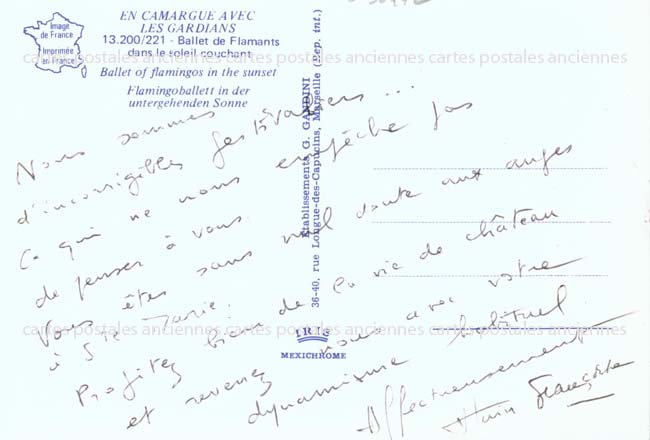 EN CAMARGUE AVEC
LES GARDIANS
13.200/221 - Ballet de Flamants
dans le soleil couchant
Ballet of flamingos in the sunset
Flamingoballett in der
untergehenden Sonne
Image
de France
Imprimée
en France
cartes postales anciennes cartes postales anciennes cartes postales anciennes
Etablissements G. GANDINI
36-40, rue Longue-des-Capucins, Marseille (Dep. int.)
Nous sommes
d'incorrigibles festivaliers...
Ce qui ne nous empêche pas
de penser à vous.
Vous êtes sans nul doute aux anges
à Ste Marie.
Profitez bien de la vie de château
et revenez nous avec votre
dynamisme habituel.
Affectueusement
Françoise
cartes postales anciennes cartes postales anciennes cartes postales anciennes
IRIS
MEXICHROME